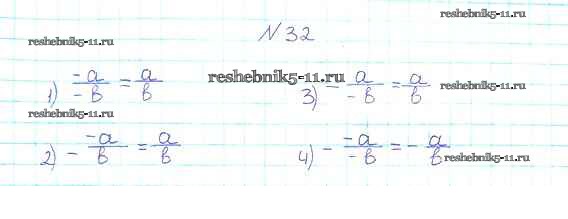 N 32
reshebnik5-11.ru
1) -a/-b = a/b reshebnik5-11.ru 3) - a/-b = a/b reshebnik5-11.ru
reshebnik5-11.ru
2) - -a/b = a/b 4) - -a/-b = - a/b reshebnik5-11.ru